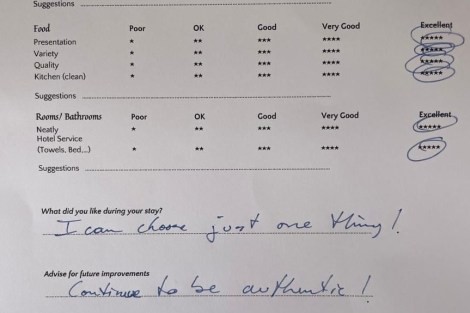 Suggestions
Food Poor OK Good Very Good Excellent
Presentation * ** *** **** *****
Variety * ** *** **** *****
Quality * ** *** **** *****
Kitchen (clean) * ** *** **** *****
Suggestions
Rooms/ Bathrooms Poor OK Good Very Good Excellent
Neatly * ** *** **** *****
Hotel Service
(Towels, Bed...) * ** *** **** *****
Suggestions
What did you like during your stay?
I can choose just one thing!
Advise for future improvements
Continue to be authentic!